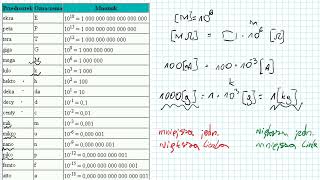 Przedrostek Oznaczenie Mnożnik
eksa E 10¹⁸ = 1 000 000 000 000 000 000
peta P 10¹⁵ = 1 000 000 000 000 000
tera T 10¹² = 1 000 000 000 000
giga G 10⁹ = 1 000 000 000
mega M 10⁶ = 1 000 000
kilo k 10³ = 1 000
hekto h 10² = 100
deka da 10¹ = 10
decy d 10⁻¹ = 0,1
centy c 10⁻² = 0,01
mili m 10⁻³ = 0,001
mikro 10⁻⁶ = 0,000 001
nano n 10⁻⁹ = 0,000 000 001
piko p 10⁻¹² = 0,000 000 000 001
femto f 10⁻¹⁵ = 0,000 000 000 000 001
atto a 10⁻¹⁸ = 0,000 000 000 000 000 001
[M] = 10⁶
M
[MΩ] = · 10⁶ [Ω]
1000[A] = 1 · 10³ [A]
k
1000[g] = 1 · 10³ [g] = 1 [kg]
mniejsza jedn. większa jedn.
większa liczba mniejsza liczba